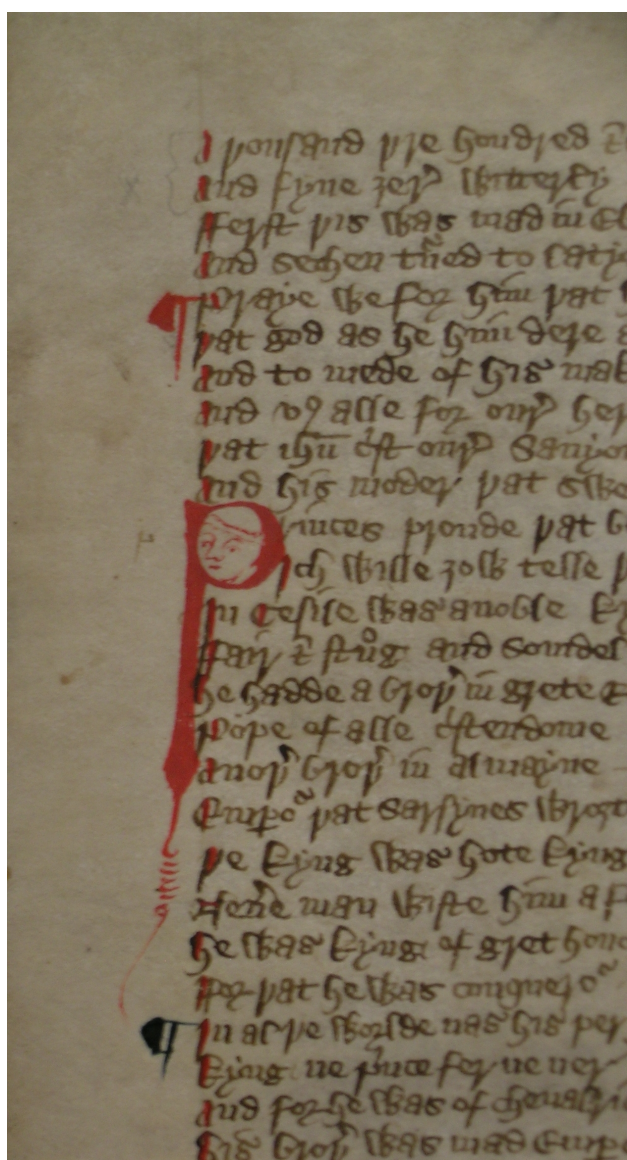 A þousand þre hondred &
And fyue ȝer witterly
Fferst þis was mad in
And sethen tned to latyn
Praye we for him þat
þat god as he him dere
And to mede of his mak
And vs alle for our her
þat ihu cst our Sauyo
And his moder þat swe
Princes proude þat
Ich wille ȝow telle
In Cesile was a noble ky
Fair & strong and somdel
he hadde a broþ in grete
Pope of alle cstendome
Anoþ broþ in almayne
Empo þat Sarsynes wroȝt
þe kyng was hote kyng
Neue man wiste him a
he was kyng of gret hono
For þat he was conquero
In al þe worlde nas his per
Kyng ne pince fer ne ner
And for he was of cheualri
his broþ was mad Empo